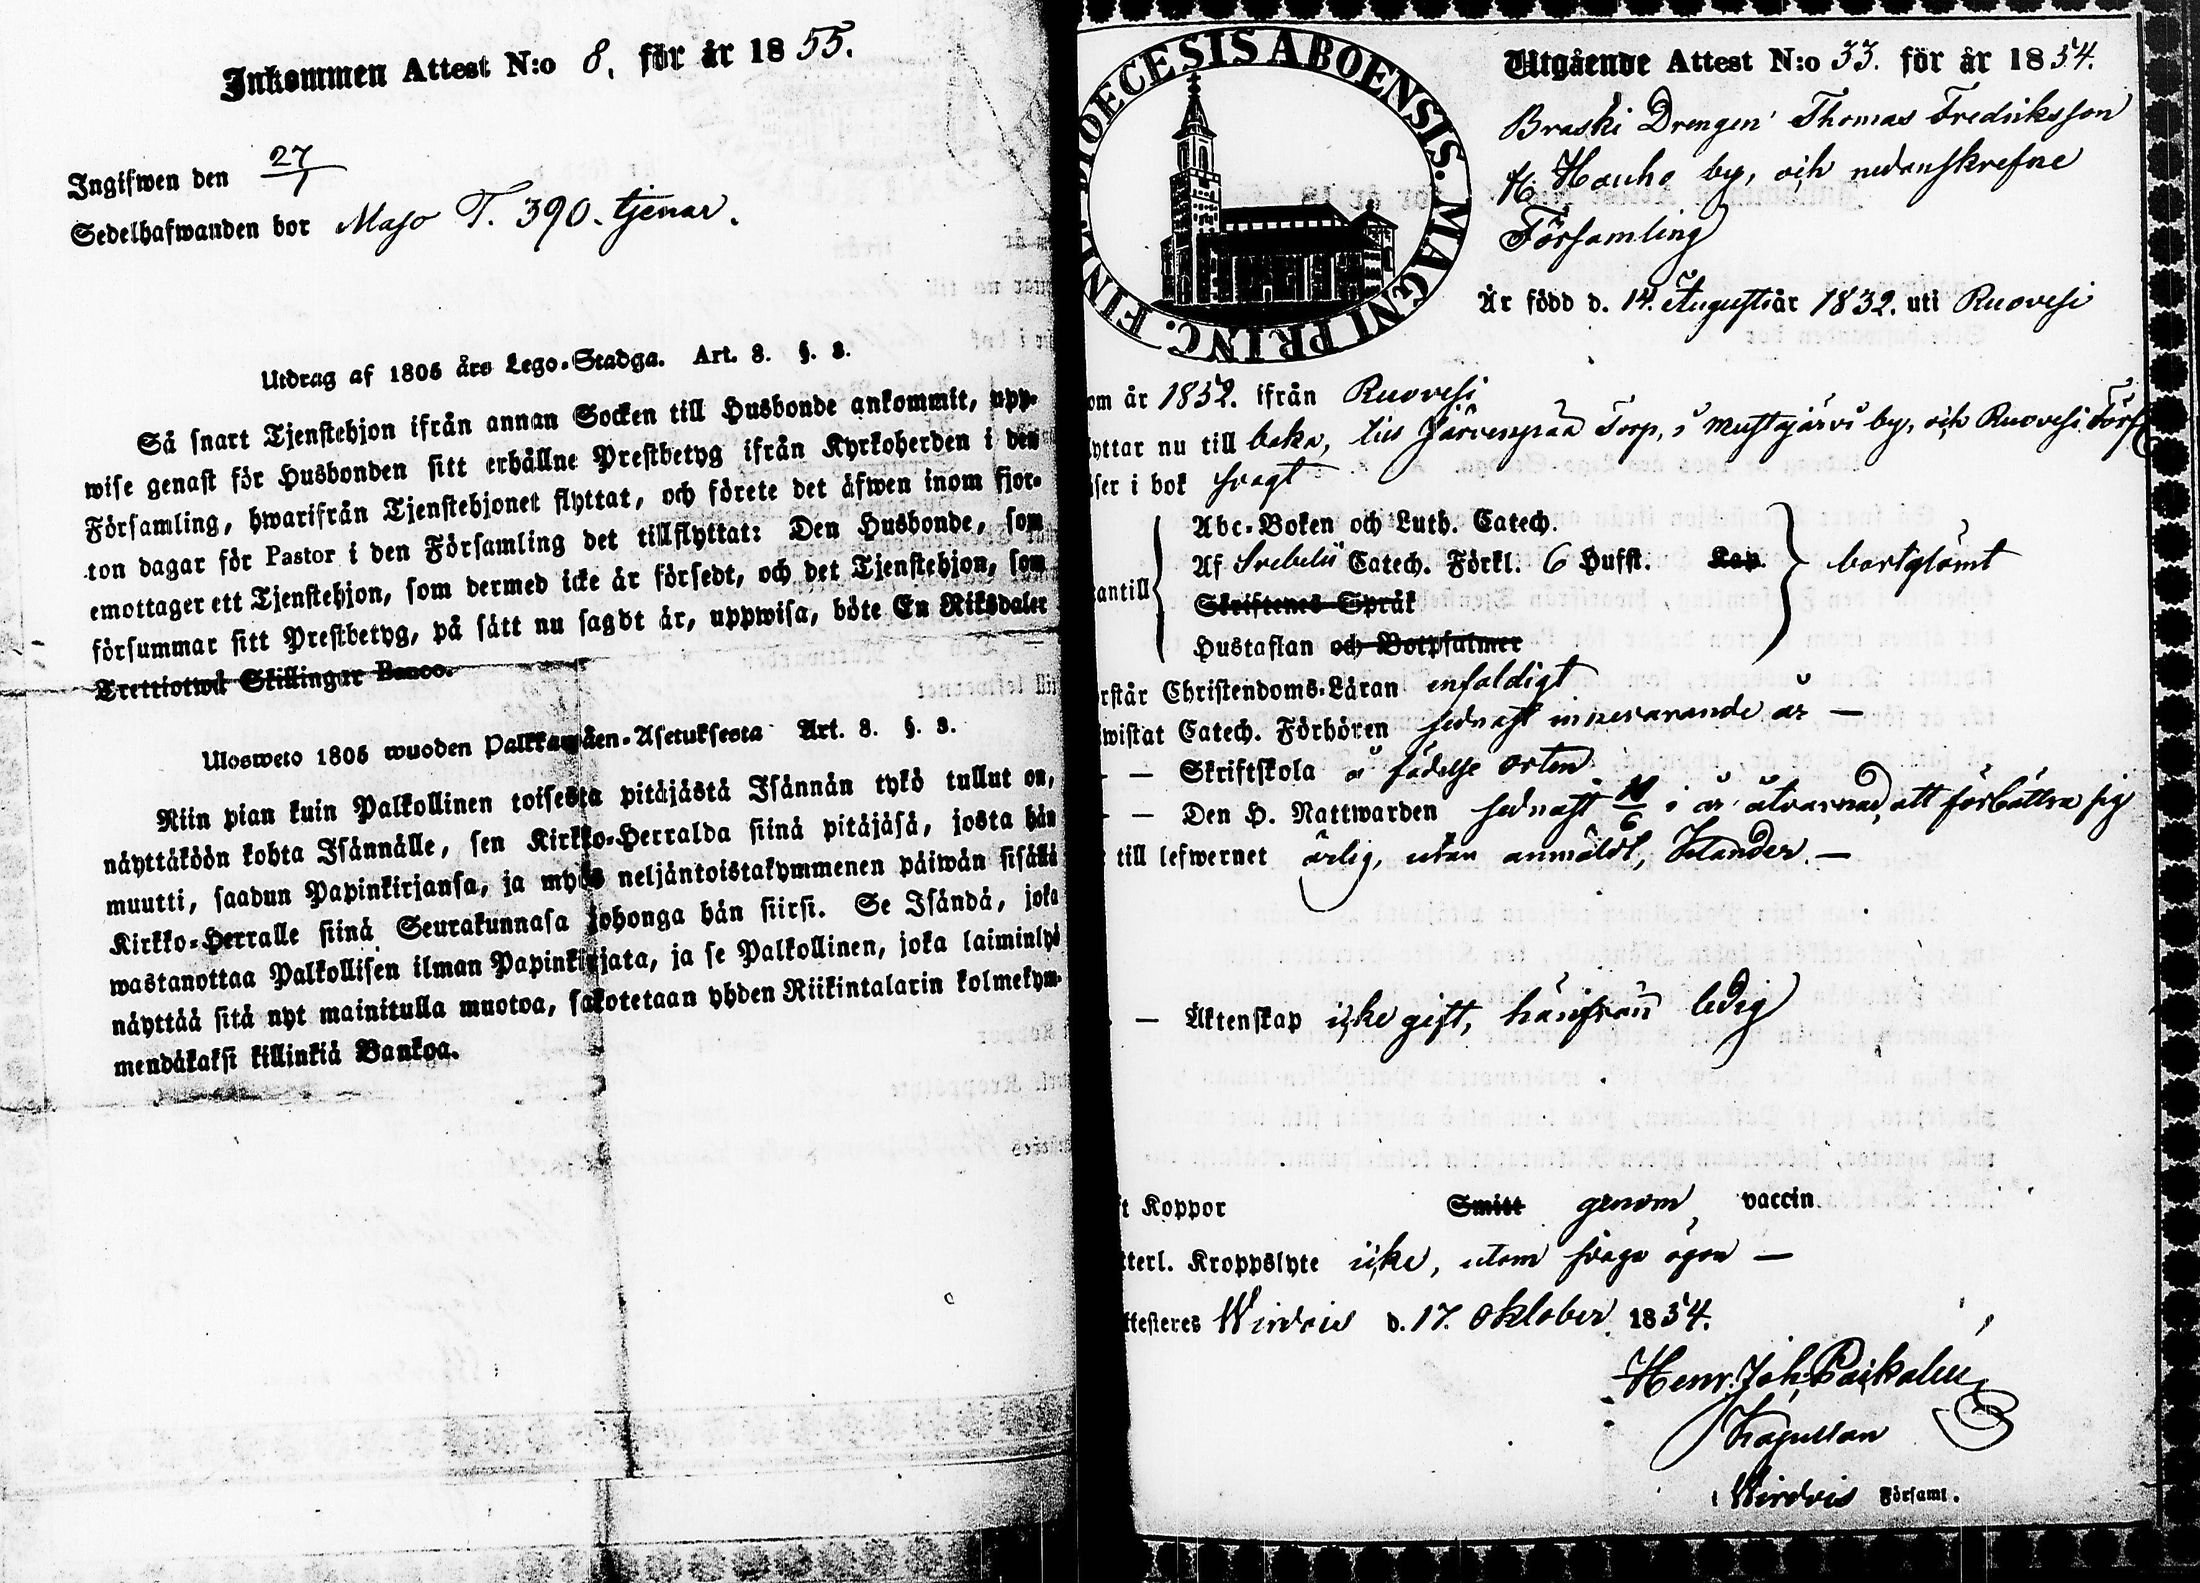 Inkommen Attest N:o 8. för år 1855.
Ingifwen den 27/1
Sedelhafwanden bor Majo T. 390. tjenar.
Utdrag af 1805 års Lego-Stadga. Art. 8. §. 3.
Så snart Tjenstehjon ifrån annan Socken till Husbonde ankommit, upp-
wise genast för Husbonden sitt erhållne Prestbetyg ifrån Kyrkoherden i den
Församling, hwarifrån Tjenstehjonet flyttat, och förete det äfwen inom fjor-
ton dagar för Pastor i den Församling det tillflyttat: Den Husbonde, som
emottager ett Tjenstehjon, som dermed icke är försedt, och det Tjenstehjon, som
försummar sitt Prestbetyg, på sätt nu sagdt är, uppwisa, böte En Riksdaler
Trettiotwå Skillingar Banco.
Ulosweto 1805 wuoden Palkkawäen-Asetuksesta Art. 8. §. 3.
Niin pian kuin Palkollinen toisesta pitäjästä Isännän tykö tullut on,
näyttäköön kohta Isännälle, sen Kirkko-Herralda siinä pitäjäsä, josta hän
muutti, saadun Papinkirjansa, ja myös neljäntoistakymmenen päiwän sisällä
Kirkko-Herralle siinä Seurakunnasa johonga hän siirsi. Se Isändä, joka
wastanottaa Palkollisen ilman Papinkirjata, ja se Palkollinen, joka laiminlyö
näyttää sitä nyt mainitulla muotoa, sakotetaan yhden Riikintalarin kolmekym-
mendäkaksi killinkiä Bankoa.
DIOECESIS ABOENSIS. MAGNI PRINC. FINL.
Utgående Attest N:o 33. för år 1854.
Braski Drengen Thomas Fredriksson
Hauho by, och nedanskrefne
Församling
Är född d. 14. Augusti år 1832. uti Ruovesi
om år 1852. ifrån Ruovesi
yttar nu till baka, till Järvenpää Torp, i Mustajärvi by, och Ruovesi Förs
äser i bok svagt
Abc-Boken och Luth. Catech.
Af Svebelii Catech. Förkl. 6 Hufst. Kap. bortglömt
antill
Skriftenes Språk
Hustaflan och Botpsalmer
rstår Christendoms-Läran enfaldigt
wistat Catech. Förhören sednast innevarande år —
— — Skriftskola å födelse orten
— — Den H. Nattwarden sednast i år, åtvarnad, att förbättra sig
till lefwernet ärlig, utan anmäldt, klander. —
— Äktenskap icke gift, härifrån ledig
t Koppor Smitt genom vaccin
tterl. Kroppslyte icke, utom svaga ögon —
ttesteres Wirdois d. 17. Oktober 1854.
Henr. Joh.
Kapellan
i Wirdois Församl.